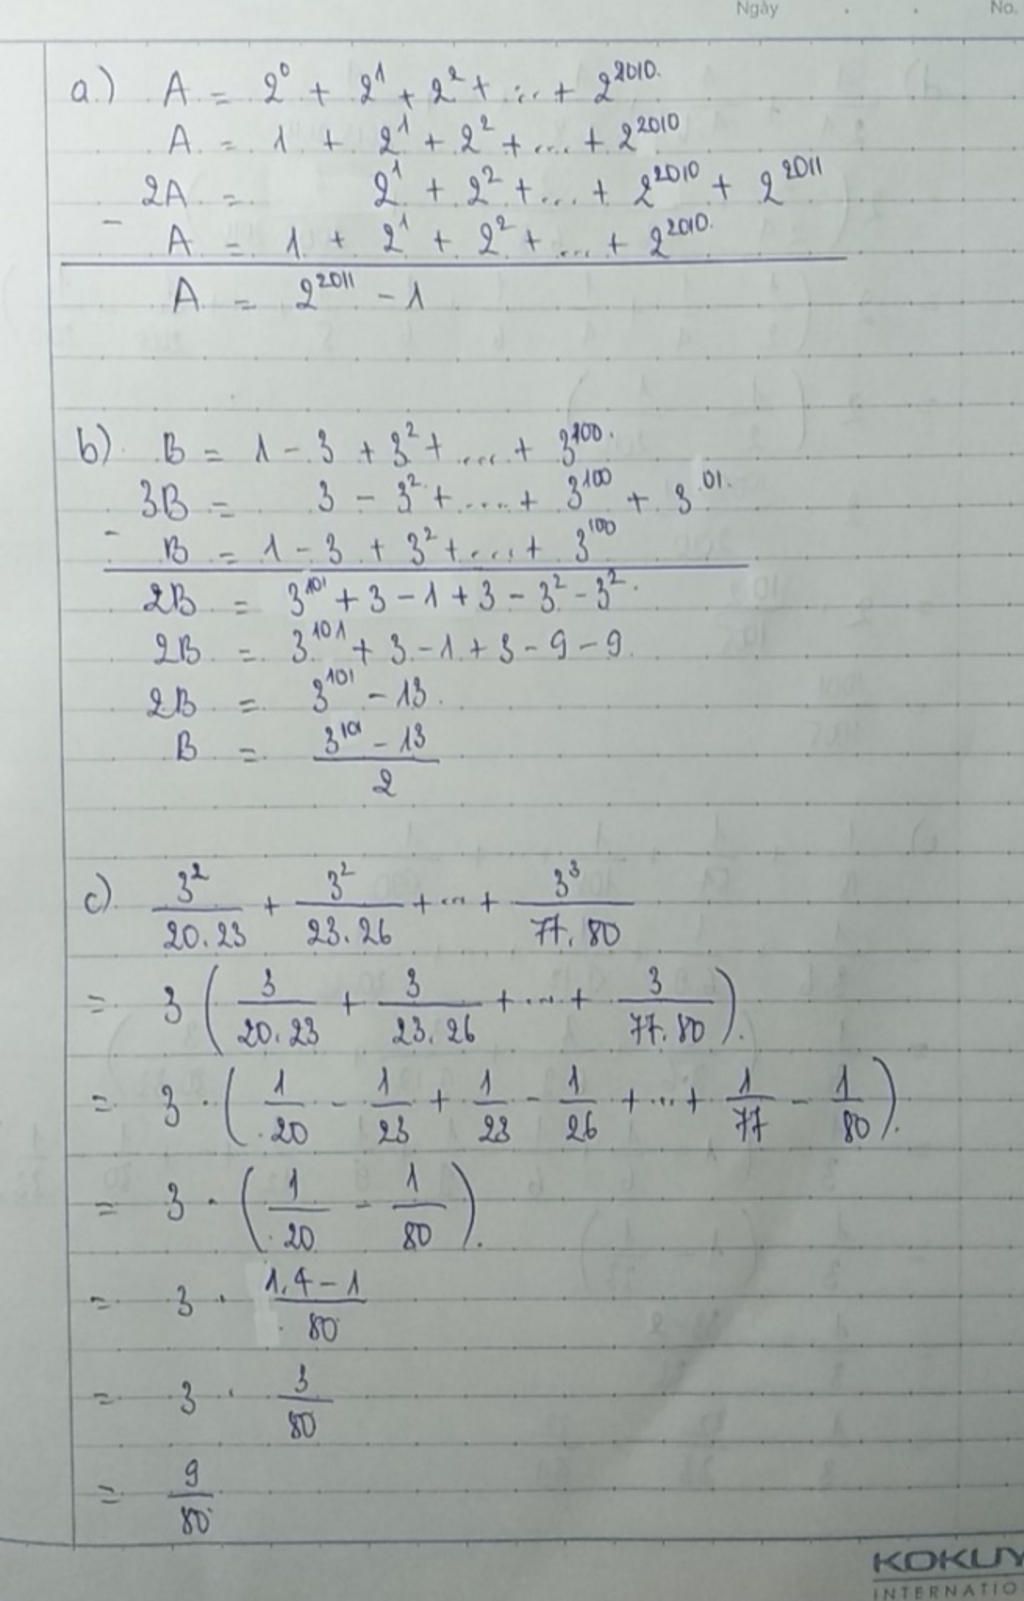 Ngày No.
a.) A = 2⁰ + 2¹ + 2² + ... + 2²⁰¹⁰.
A = 1 + 2¹ + 2² + ... + 2²⁰¹⁰
2A = 2¹ + 2² + ... + 2²⁰¹⁰ + 2²⁰¹¹
- A = 1 + 2¹ + 2² + ... + 2²⁰¹⁰.
A = 2²⁰¹¹ - 1
b) B = 1 - 3 + 3² + .... + 3¹⁰⁰.
3B = 3 - 3² + ..... + 3¹⁰⁰ + 3⁰¹.
- B = 1 - 3 + 3² + .... + 3¹⁰⁰
2B = 3¹⁰¹ + 3 - 1 + 3 - 3² - 3².
2B = 3¹⁰¹ + 3 - 1 + 3 - 9 - 9.
2B = 3¹⁰¹ - 13.
B = (3¹⁰¹ - 13)/2
c) 3²/20.23 + 3²/23.26 + ... + 3³/77.80
= 3 (3/20.23 + 3/23.26 + .... + 3/77.80).
= 3 · (1/20 - 1/23 + 1/23 - 1/26 + ... + 1/77 - 1/80).
= 3 · (1/20 - 1/80).
= 3 · (1.4 - 1)/80
= 3 · 3/80
= 9/80
KOKUY
INTERNATIO